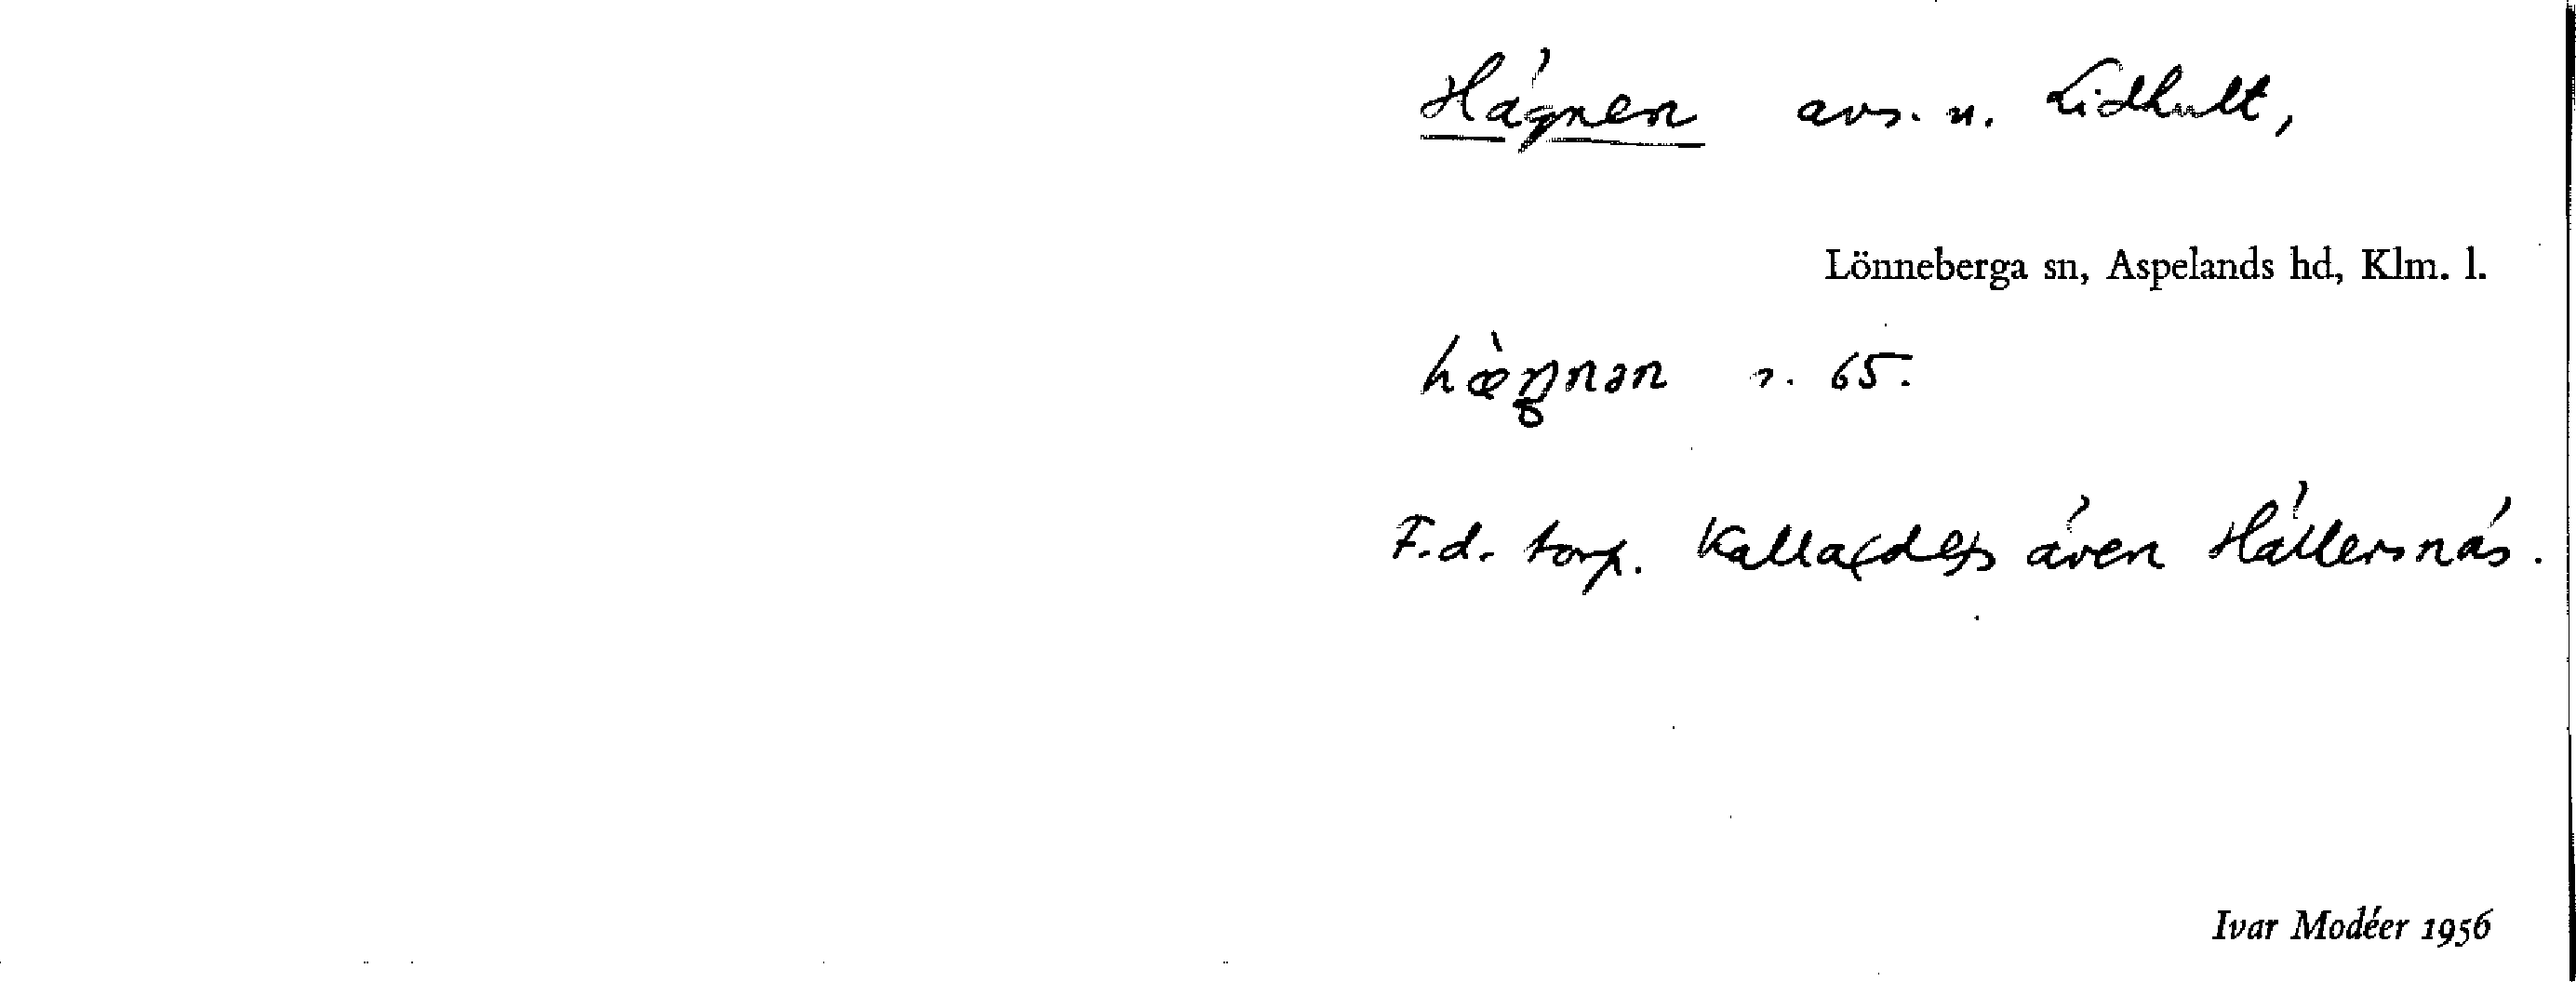 Hägnen avs. u. Lidhult,
Lönneberga sn, Aspelands hd, Klm. l.
hæ̀ŋnən s. 65.
F.d. torp. Kalla(de)s även Hällersnäs.
Ivar Modéer 1956